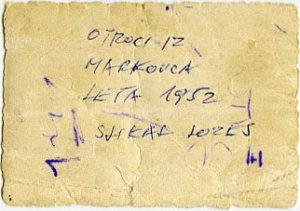 OTROCI IZ
MARKOVCA
LETA 1952
SLIKAL LOZEŠ